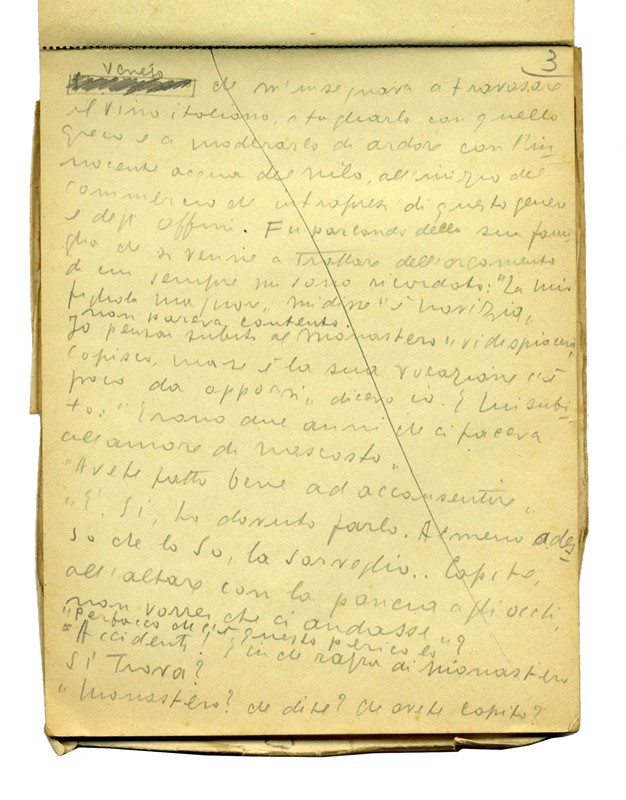 3
Veneto
che m'insegnava a travasare
il vino italiano, a tagliarlo con quello
greco e a moderarlo di ardore con l'in
nocente acqua del nilo, all'inizio del
commercio ch' intrapresi di questo genere
e degli affini. Fu parlando della sua fami-
glia che si venne a trattare dell'argomento
di cui sempre mi sono ricordato: "La mia
figliola maggiore" mi disse "è novizia,
non pareva contento.
Io pensai subito al monastero "vi dispiacerà,
capisco, ma se è la sua vocazione c'è
poco da opporsi" dicevo io. E lui subi-
to: "Erano due anni che ci faceva
all'amore di nascosto"
"Avete fatto bene ad acconsentire"
"E! Sì, ho dovuto farlo. Almeno ades
so che lo so, la sorveglio.. Capite,
all'altare con la pancia agli occhi
non vorrei che ci andasse"?
"Perbacco che c'è questo pericolo
"Accidenti! E in che razza di monastero
si trova?
"Monastero? che dite? Che avete capito?